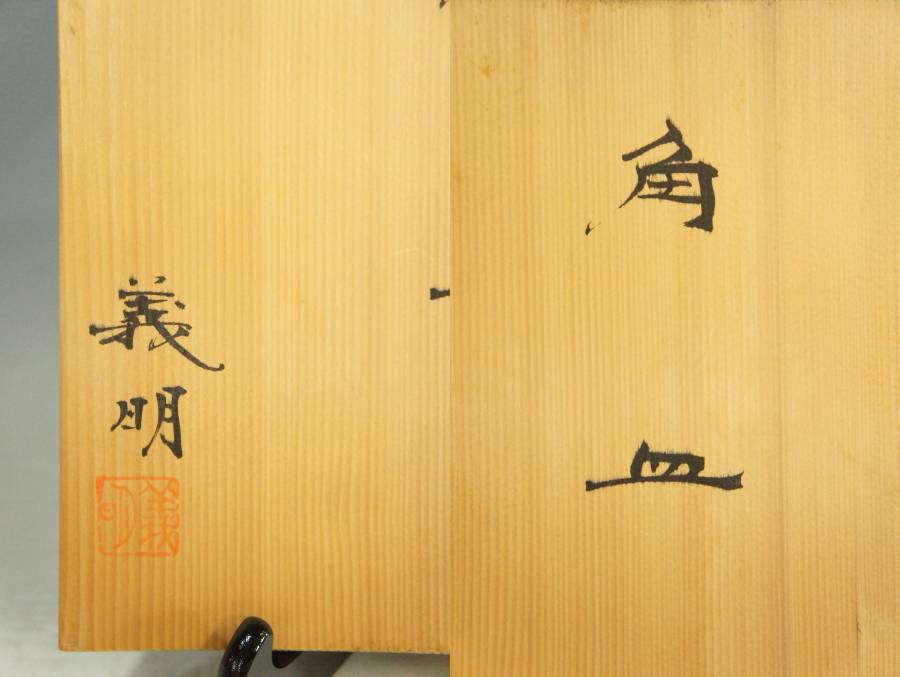 角皿
義明
義明